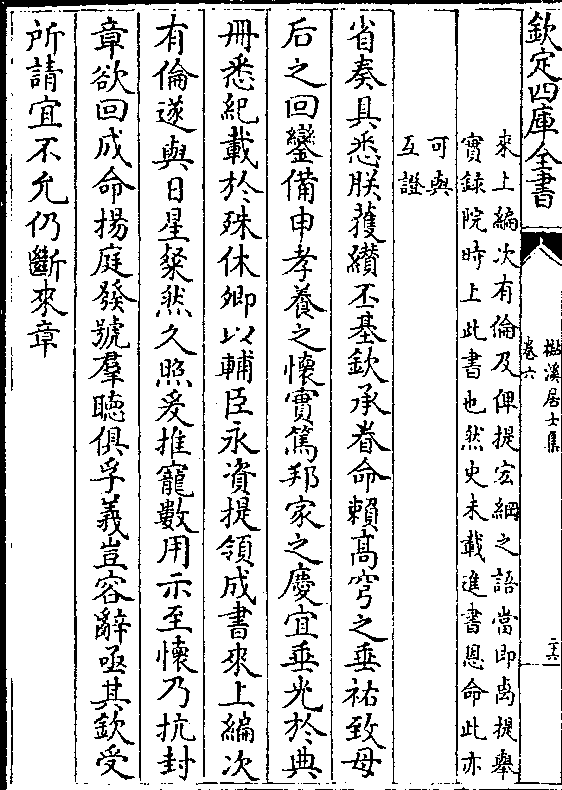 欽定四庫全書
檆溪居士集
卷六
二六
來上編次有倫及俾提宏綱之語當即卨提舉
實錄院時上此書也然史未載進書恩命此亦
可與
互證
省奏具悉朕獲纘丕基欽承眷命賴髙穹之垂祐致母
后之回鑾備申孝養之懷實篤邦家之慶宜垂光於典
冊悉紀載於殊休卿以輔臣永資提領成書來上編次
有倫遂與日星粲然久照爰推寵數用示至懷乃抗封
章欲回成命揚庭發號羣聴俱孚義豈容辭亟其欽受
所請宜不允仍斷來章